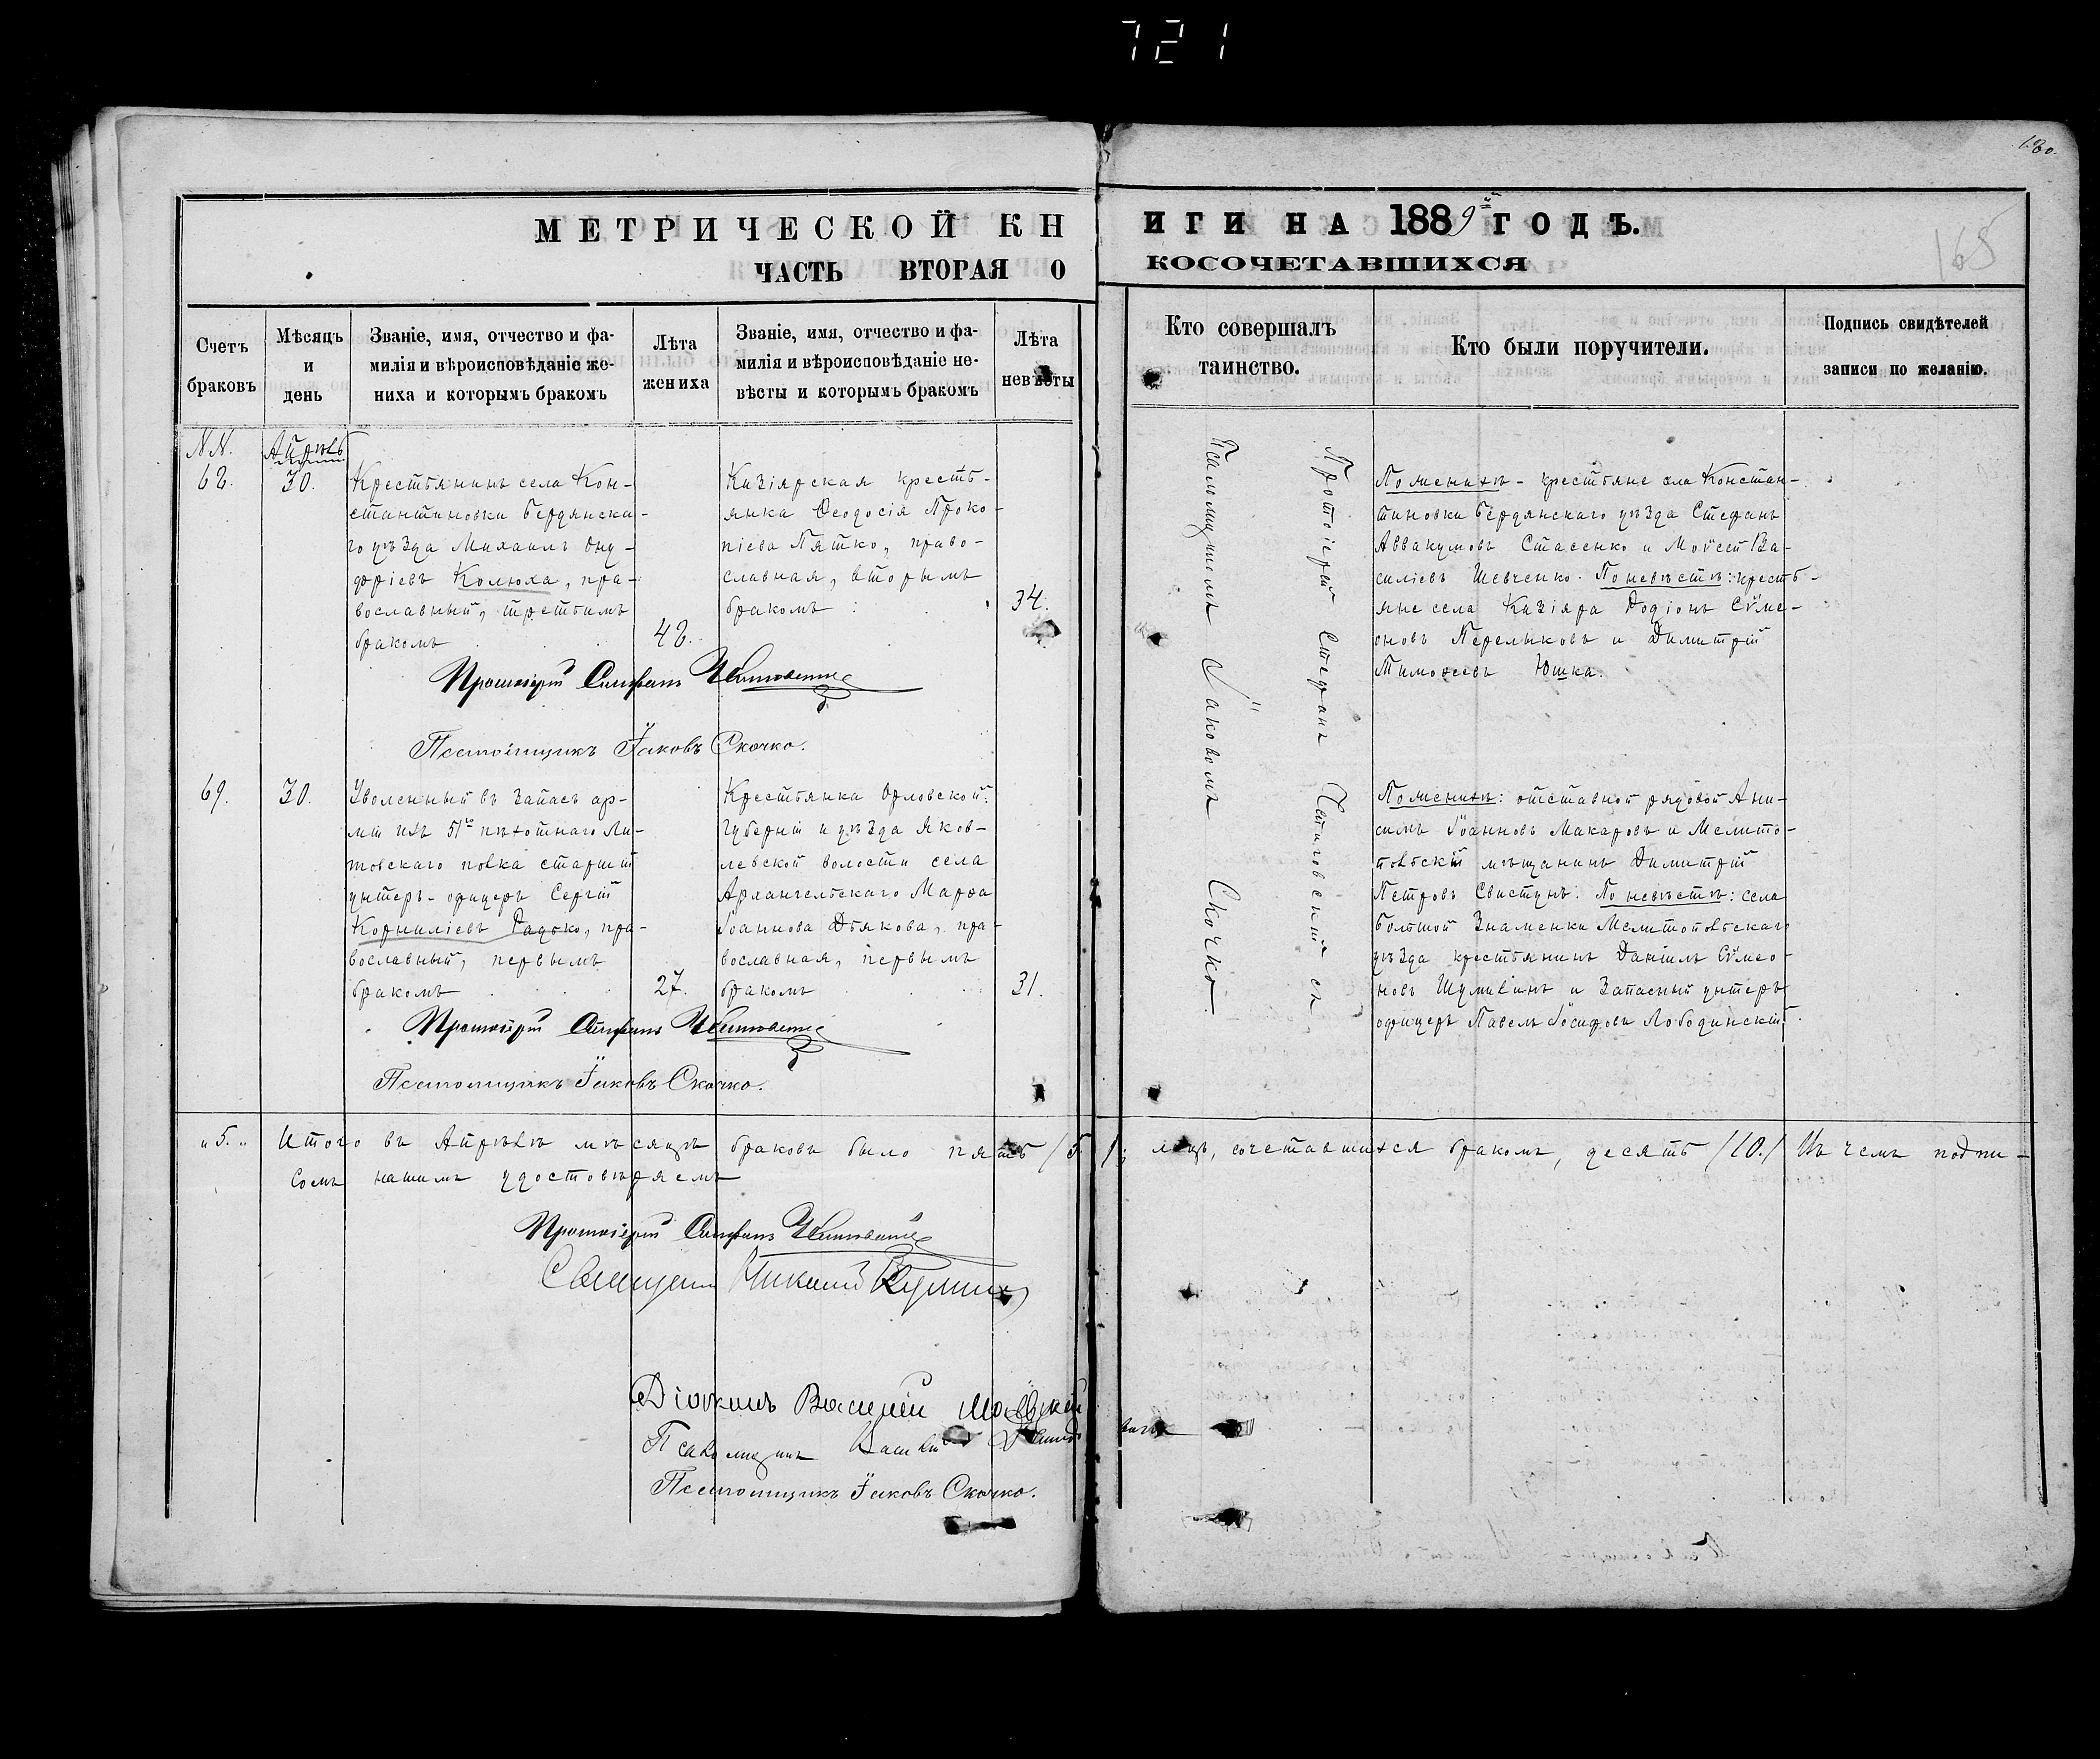 721
180.
165
МЕТРИЧЕСКОЙ КН
ИГИ НА 1889й ГОДЪ.
ЧАСТЬ ВТОРАЯ О
КОСОЧЕТАВШИХСЯ
Счетъ
браковъ
Мѣсяцъ
и
день
Званіе, имя, отчество и фа-
милія и вѣроисповѣданіе же-
ниха и которымъ бракомъ
Лѣта
жениха
Званіе, имя, отчество и фа-
милія и вѣроисповѣданіе не-
вѣсты и которымъ бракомъ
Лѣта
невѣсты
Кто совершалъ
таинство.
Кто были поручители.
Подпись свидѣтелей
записи по желанію.
NN.
Апрѣль
68.
30.
Крестьянинъ села Кон-
стантиновки Бердянска-
го уѣзда Михаилъ Ону-
фріевъ Колюха, пра-
вославный, третьимъ
бракомъ
48.
Кизіярская кресть-
янка Ѳеодосія Проко-
піева Пятко, право-
славная, вторымъ
бракомъ
34.
Протоіерей Стефанъ
Псаломщикъ Іаковъ Скочко.
Протоіерей Стефанъ съ
Псаломщикомъ Іаковомъ Скочко.
По женихѣ - крестьяне села Констан-
тиновки Бердянскаго уѣзда Стефанъ
Аввакумовъ Стасенко и Моѵсей Ва-
силіевъ Шевченко. По невѣстѣ: кресть-
яне села Кизіяра Родіонъ Сѵме-
оновъ Перелыковъ и Димитрій
Тимоѳеевъ Юшка.
69.
30.
Уволенный въ запасъ ар-
міи изъ 51го пѣхотнаго Ли-
товскаго полка старшій
унтеръ-офицеръ Сергій
Корниліевъ Радько, пра-
вославный, первымъ
бракомъ
27.
Крестьянка Орловской
губерніи и уѣзда Яков-
левской волости села
Архангельскаго Марѳа
Іоаннова Дьякова, пра-
вославная, первымъ
бракомъ
31.
Протоіерей Стефанъ
Псаломщикъ Іаковъ Скочко.
По женихѣ: отставной рядовой Ани-
симъ Іоанновъ Макаровъ и Мелито-
польскій мѣщанинъ Димитрій
Петровъ Свистунъ. По невѣстѣ: села
Большой Знаменки Мелитопольскаго
уѣзда крестьянинъ Даніилъ Сѵмео-
новъ Шумилинъ и запасный унтеръ
офицеръ Павелъ Іосифовъ Лободинскій.
„5.„ Итого въ Апрѣлѣ мѣсяцѣ браковъ было пять /5/; лицъ, сочетавшихся бракомъ, десять /10./ Въ чемъ подпи-
сомъ нашимъ удостовѣряемъ
Протоіерей Стефанъ
Священникъ Николай
Діаконъ Василій
Псаломщикъ
Псаломщикъ Іаковъ Скочко.